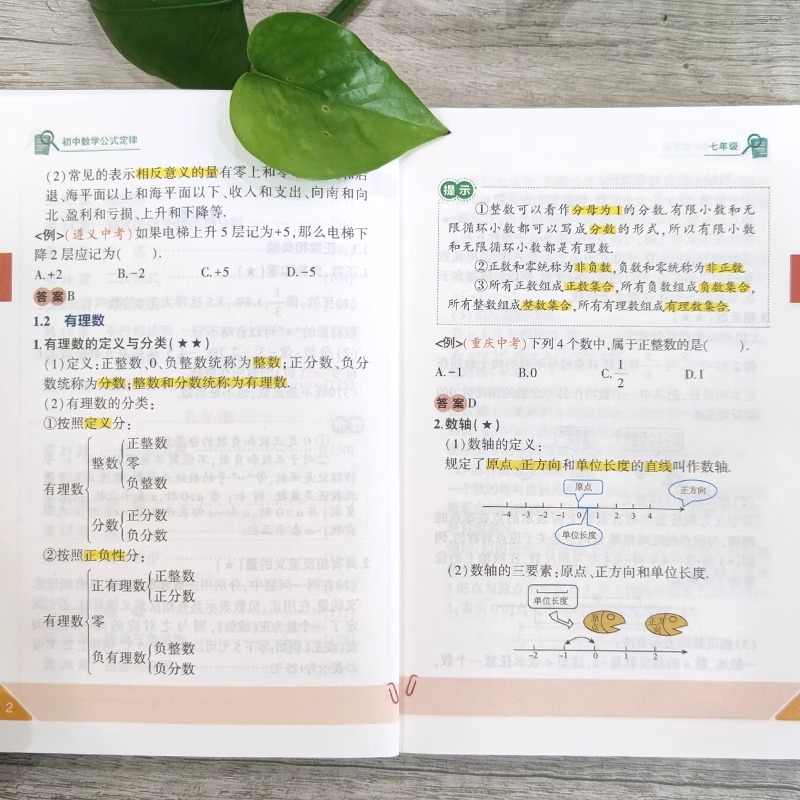 初中数学公式定律
(2)常见的表示相反意义的量有零上和零
退、海平面以上和海平面以下、收入和支出、向南和向
北、盈利和亏损、上升和下降等.
<例>(遵义中考)如果电梯上升5层记为+5,那么电梯下
降2层应记为( ).
A.+2 B.-2 C.+5 D.-5
答案B
1.2 有理数
1.有理数的定义与分类(★★)
(1)定义:正整数、0、负整数统称为整数;正分数、负分
数统称为分数;整数和分数统称为有理数.
(2)有理数的分类:
①按照定义分:
正整数
整数 零
负整数
有理数
正分数
分数
负分数
②按照正负性分:
正整数
正有理数
正分数
有理数 零
负整数
负有理数
负分数
2
七年级
提示
①整数可以看作分母为1的分数.有限小数和无
限循环小数都可以写成分数的形式,所以有限小数
和无限循环小数都是有理数.
②正数和零统称为非负数,负数和零统称为非正数.
③所有正数组成正数集合,所有负数组成负数集合,
所有整数组成整数集合,所有有理数组成有理数集合.
<例>(重庆中考)下列4个数中,属于正整数的是( ).
A.-1 B.0 C.1/2 D.1
答案D
2.数轴(★)
(1)数轴的定义:
规定了原点、正方向和单位长度的直线叫作数轴.
原点 正方向
-4 -3 -2 -1 0 1 2 3 4
单位长度
(2)数轴的三要素:原点、正方向和单位长度.
单位长度
原点 正方向
-2 -1 0 1 2